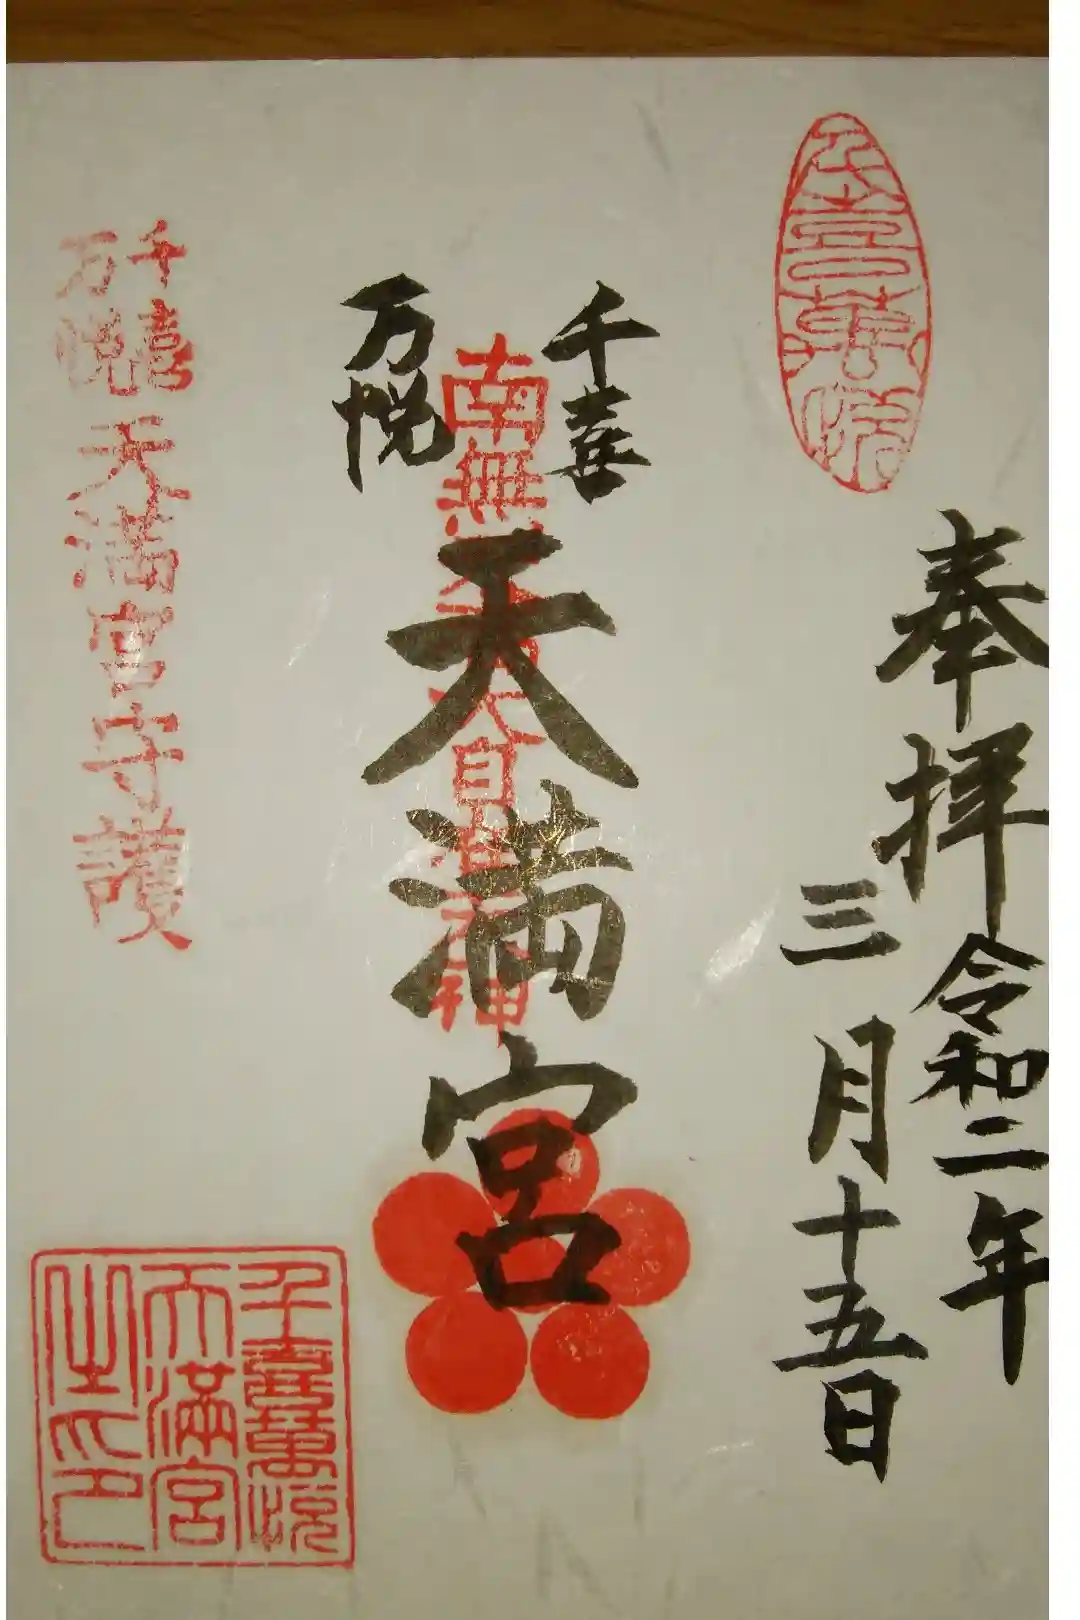 千喜萬悦
奉拝
令和二年
三月十五日
千喜
万悦
天満宮
南無天満大自在天神
千喜
万悦
天満宮守護
千喜萬悦
天満宮
之印